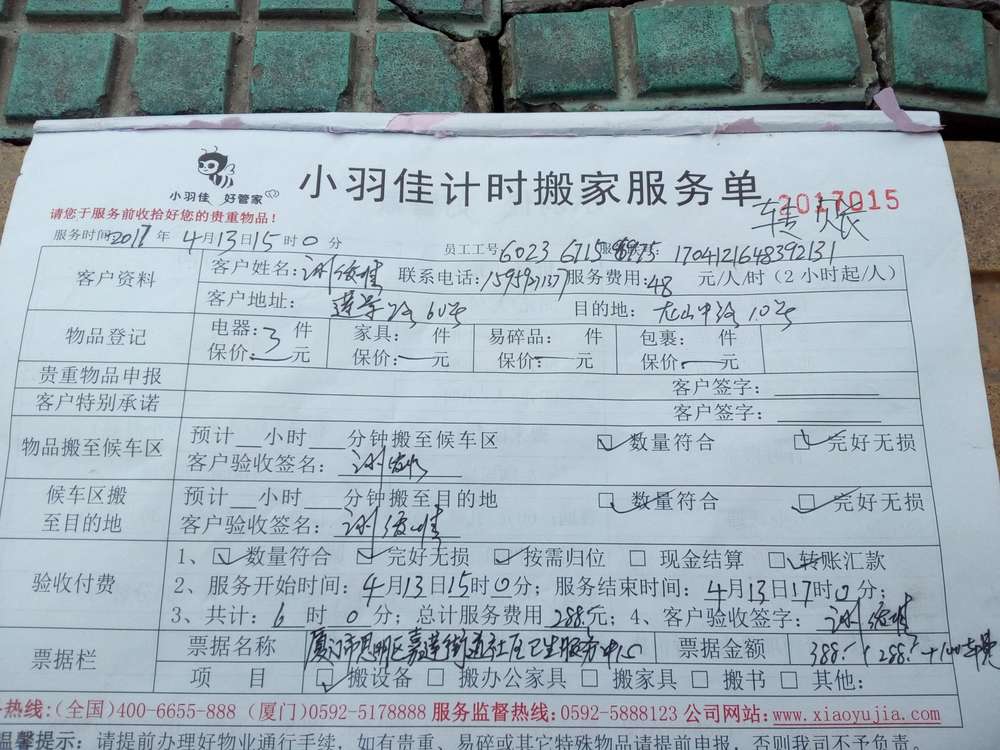 小羽佳 好管家
小羽佳计时搬家服务单
2017015
请您于服务前收拾好您的贵重物品！
转 欠表
服务时间2017年4月13日15时0分
员工工号6023 6715 6975 1704121648392131
客户资料 客户姓名： 联系电话： 服务费用：48 元/人/时（2小时起/人）
客户地址：莲岳路60号 目的地：龙山中路10号
物品登记 电器：3件 家具： 件 易碎品： 件 包裹： 件
保价： 元 保价： 元 保价： 元 保价： 元
贵重物品申报 客户签字：
客户特别承诺 客户签字：
物品搬至候车区 预计__小时__分钟搬至候车区 数量符合 完好无损
客户验收签名：
候车区搬至目的地 预计__小时__分钟搬至目的地 数量符合 完好无损
客户验收签名：
验收付费 1、 数量符合 完好无损 按需归位 现金结算 转账汇款
2、服务开始时间：4月13日15时0分；服务结束时间：4月13日17时0分；
3、共计：6时0分；总计服务费用288元；4、客户验收签字：
票据栏 票据名称 厦门市思明区嘉莲街道社区卫生服务中心 票据金额 388（288+100车费
项 目 搬设备 搬办公家具 搬家具 搬书 其他：
热线：（全国）400-6655-888 （厦门）0592-5178888 服务监督热线：0592-5888123 公司网站：www.xiaoyujia.com
温馨提示：请提前办理好物业通行手续，如有贵重、易碎或其它特殊物品请提前申报，否则我司不予负责